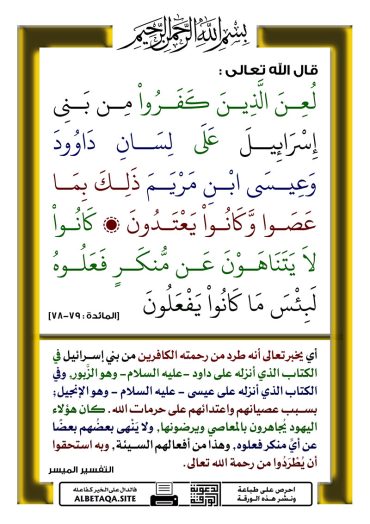 بسم الله الرحمن الرحيم
قال الله تعالى :
لُعِنَ الَّذِينَ كَفَرُواْ مِن بَنِي
إِسْرَائِيلَ عَلَى لِسَانِ دَاوُودَ
وَعِيسَى ابْنِ مَرْيَمَ ذَلِكَ بِمَا
عَصَوا وَّكَانُواْ يَعْتَدُونَ ۞ كَانُواْ
لاَ يَتَنَاهَوْنَ عَن مُّنكَرٍ فَعَلُوهُ
لَبِئْسَ مَا كَانُواْ يَفْعَلُونَ [المائدة : ٧٩-٧٨]
أي يخبر تعالى أنه طرد من رحمته الكافرين من بني إسرائيل في
الكتاب الذي أنزله على داود - عليه السلام - وهو الزَّبور, وفي
الكتاب الذي أنزله على عيسى - عليه السلام - وهو الإنجيل؛
بسبب عصيانهم واعتدائهم على حرمات الله . كان هؤلاء
اليهود يُجاهرون بالمعاصي ويرضونها, ولا يَنْهى بعضُهم بعضًا
عن أيِّ منكر فعلوه, وهذا من أفعالهم السيئة, وبه استحقوا
أن يُطْرَدُوا من رحمة الله تعالى.
التفسير الميسر
احرص على طباعة
ونشر هذه الورقة
لدعوية الورقة
فالدال على الخير كفاعله
ALBETAQA.SITE